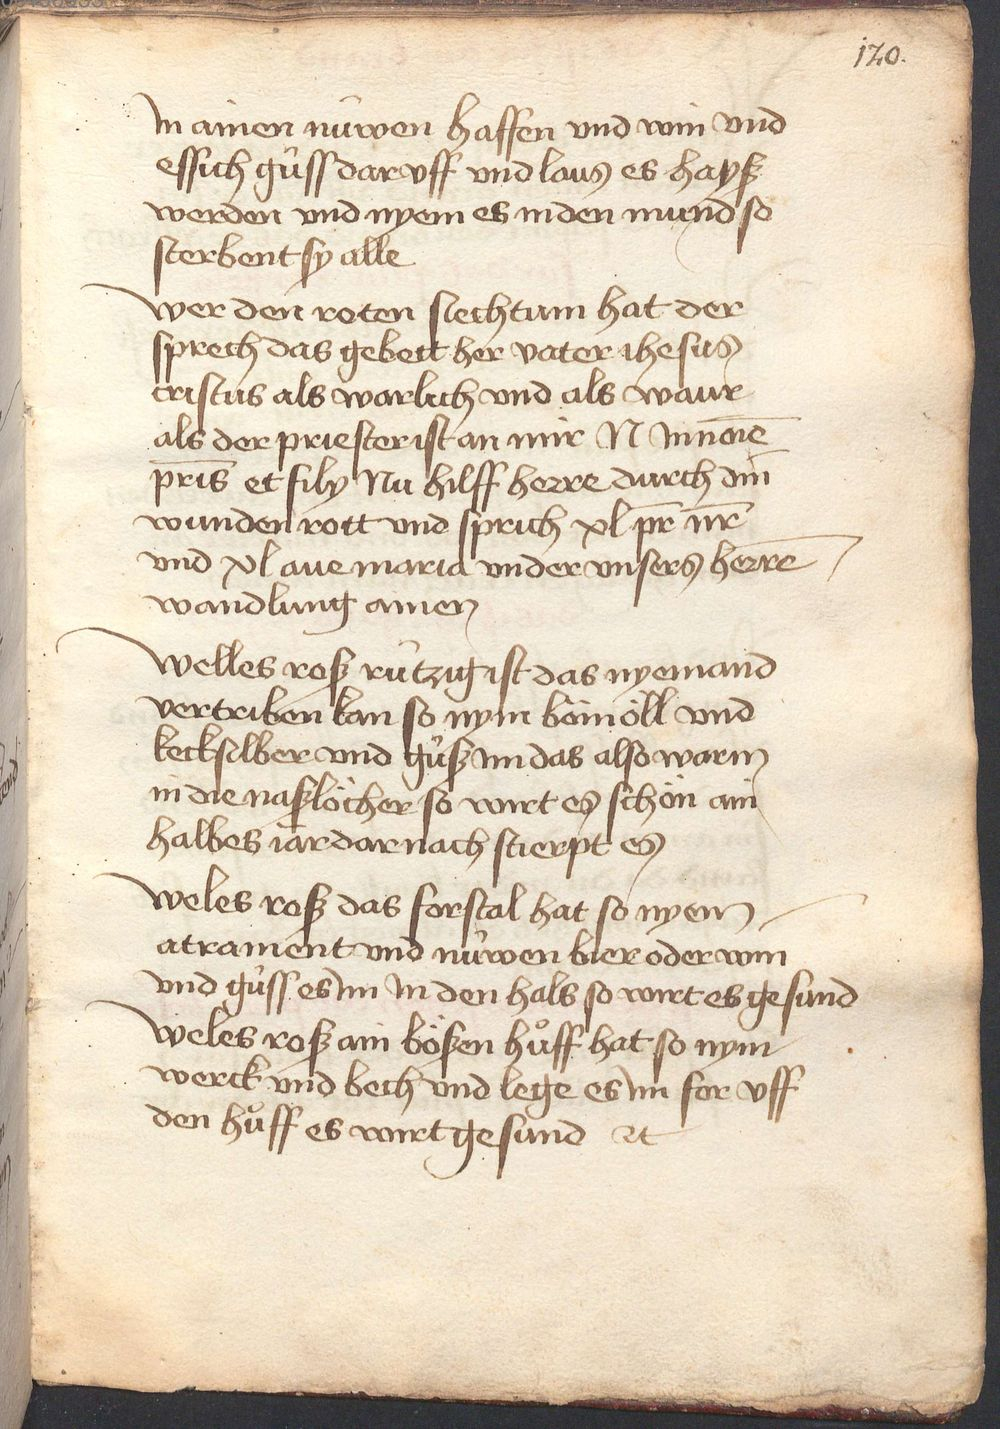 120.
In ainen nüwen haffen vnd win vnd
essich güss dar vff vnd laus es haysß
werden vnd nyem es in den mund so
sterbent sy alle
Wer den roten siechtum hat der
sprech das gebett her vater ihesus
cristus als warlich vnd als waur
als der priester ist an mir N In noīe
pr̄is et filÿ Nu hilff herre durch din̄
wunden rott vnd sprich xl pr̄ nr̄
vnd xl aue maria vnder vnsers herrē
wandlung amen
Welles roß rützig ist das nyemand
vertriben kan so nym bömöll vnd
kecksilber vnd güß im das also warm
in die naßlöcher so wirt es schön ain
halbes iar dar nach stierpt es
Weles roß das forstal hat so nyem
atrament vnd nüwen bier oder win
vnd güss es im In den hals so wirt es gesund
Weles roß ain bößen hůff hat so nym
werck vnd bech vnd lege es im for vff
den hůff es wirt gesund ꝛc